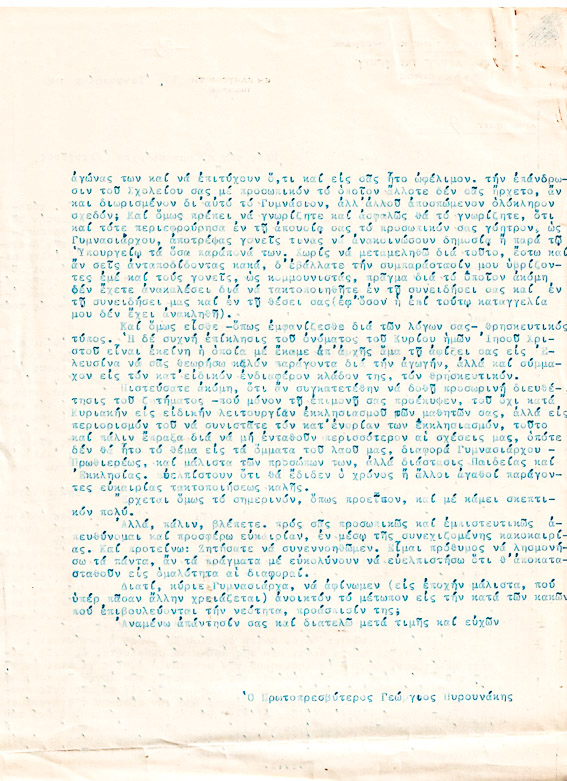 ἀγώνας των καί νά ἐπιτύχουν ὅ,τι καί εἰς σᾶς ἦτο ὠφέλιμον. τήν ἐπάνδρω-
σιν τοῦ Σχολείου σας μέ προσωπικόν τό ὁποῖον ἄλλοτε δέν σᾶς ἤρχετο, ἄν
καί διωρισμένον δι'αὐτό τό Γυμνάσιον, ἀλλ'ἀλλοῦ ἀποσπώμενον ὁλόκληρον
σχεδόν; Καί ὅμως πρέπει νά γνωρίζητε καί ἀσφαλῶς θά τό γνωρίζητε, ὅτι
καί τότε περιεφρούρησα ἐν τῇ ἀπουσίᾳ σας τό προσωπικόν σας γόητρον, ὡς
Γυμνασιάρχου, ἀποτρέψας γονεῖς τινας νά ἀνακοινώσουν δημοσίᾳ ἤ παρά τῷ
Ὑπουργείῳ τά ὅσα παράπονά των. Χωρίς νά μεταμεληθῶ διά τοῦτο, ἔστω καί
ἄν σεῖς ἀνταποδίδοντας κακά, δ'ἐβάλλατε τήν συμπαράστασίν μου ὑβρίζον-
τες ἐμέ καί τούς γονεῖς, ὡς κομμουνιστάς, πρᾶγμα διά τό ὁποῖον ἀκόμη
δέν ἔχετε ἀνακαλέσει διά νά τακτοποιηθῆτε ἐν τῇ συνειδήσει σας καί ἐν
τῇ συνειδήσει μας καί ἐν τῇ θέσει σας(ἐφ'ὅσον ἡ ἐπί τούτῳ καταγγελία
μου δέν ἔχει ἀνακληθῆ).
Καί ὅμως εἶσθε -ὅπως ἐμφανίζεσθε διά τῶν λόγων σας- θρησκευτικός
τύπος. Ἡ δέ συχνή ἐπίκλησις τοῦ ὀνόματος τοῦ Κυρίου ἡμῶν Ἰησοῦ Χρι-
στοῦ εἶναι ἐκείνη ἡ ὁποία μέ ἔκαμε ἀπ'ἀρχῆς ἅμα τῇ ἀφίξει σας εἰς Ἐ-
λευσῖνα νά σᾶς θεωρήσω καλόν παράγοντα διά τήν ἀγωγήν, ἀλλά καί σύμμα-
χον εἰς τόν κατ'εἰδικόν ἐνδιαφέρον κλάδον της, τόν θρησκευτικόν.
Πιστεύσατε ἀκόμη, ὅτι ἄν συγκατετέθην νά δοθῆ προσωρινή διευθέ-
τησις τοῦ ζητήματος -πού μόνον τῇ ἐπιμονῇ σας προέκυψεν, τοῦ ὄχι κατά
Κυριακήν εἰς εἰδικήν λειτουργίαν ἐκκλησιασμοῦ τῶν μαθητῶν σας, ἀλλά εἰς
περιορισμόν τοῦ νά συνιστᾶτε τόν κατ'ἐνορίαν των ἐκκλησιασμόν, τοῦτο
καί πάλιν ἔπραξα διά νά μή ἐνταθοῦν περισσότερον αἱ σχέσεις μας, ὁπότε
δέν θά ἦτο τό θέμα εἰς τά ὄμματα τοῦ λαοῦ μας, διαφορά Γυμνασιάρχου -
Πρωθιερέως, καί μάλιστα τῶν προσώπων των, ἀλλά διάστασις Παιδείας καί
Ἐκκλησίας. Εὐελπιστοῦν ὅτι θά ἔδιδεν ὁ χρόνος ἤ ἄλλοι ἀγαθοί παράγον-
τες εὐκαιρίας τακτοποιήσεως καλῆς.
Ἔρχεται ὅμως τό σημερινόν, ὅπως προεῖπον, καί μέ κάμει σκεπτι-
κόν πολύ.
Ἀλλά, πάλιν, βλέπετε. πρός σᾶς προσωπικῶς καί ἐμπιστευτικῶς ἀ-
πευθύνομαι καί προσφέρω εὐκαιρίαν, ἐν μέσῳ τῆς συνεχιζομένης κακοκαιρί-
ας. Καί προτείνω: Ζητήσατε νά συνεννοηθῶμεν. Εἶμαι πρόθυμος νά λησμονή-
σω τά πάντα, ἄν τά πράγματα μέ εὐκολύνουν νά εὐελπιστήσω ὅτι θ'ἀποκατα-
σταθοῦν εἰς ὁμαλότητα αἱ διαφοραί.
Διατί, κύριε Γυμνασιάρχα, νά ἀφίνωμεν (εἰς ἐποχήν μάλιστα, πού
ὑπέρ πᾶσαν ἄλλην χρειάζεται) ἀνοικτόν τό μέτωπον εἰς τήν κατά τῶν κακῶν
πού ἐπιβουλεύονται τήν νεότητα, προάσπισίν της;
Ἀναμένω ἀπάντησίν σας καί διατελῶ μετά τιμῆς καί εὐχῶν
Ὁ Πρωτοπρεσβύτερος Γεώργιος Πυρουνάκης